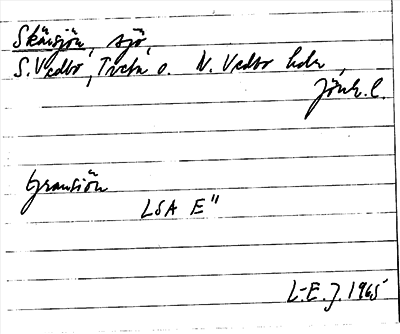 Skänsjön, sjö,
S. Vedbo, Tveta o. N. Vedbo hdr,
Jönk. l.
Gransiön
LSA E"
L-E. J. 1965